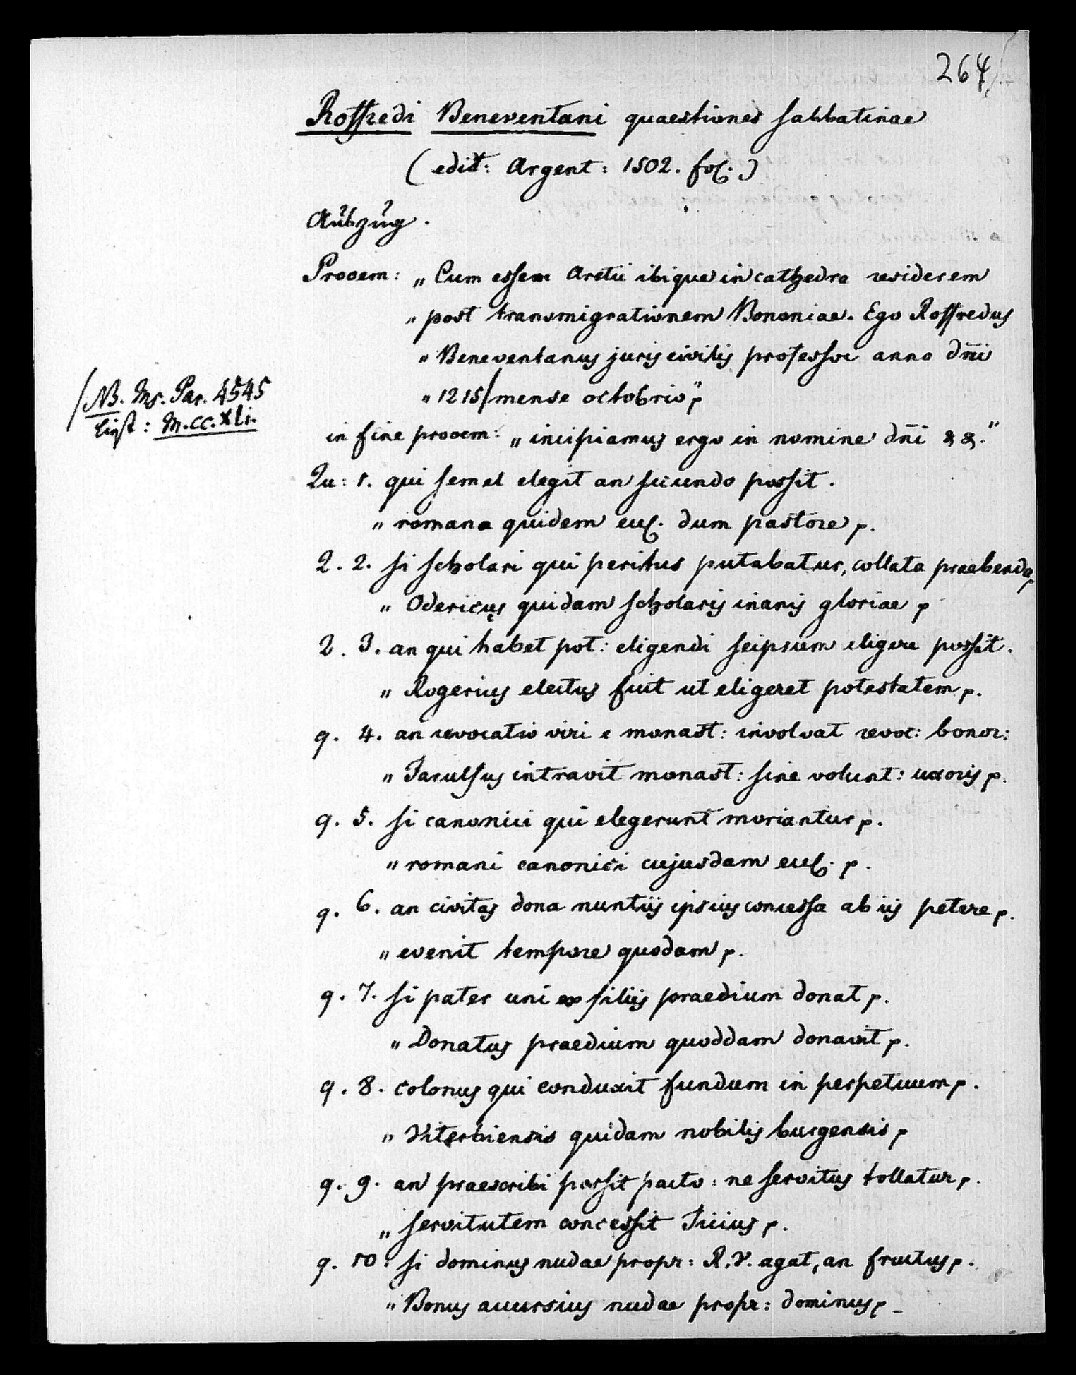 264
Roffredi Beneventani quaestiones sabbatinae
( edit: Argent: 1502. fol. )
Auszug.
Prooem: „ Cum essem Aretii ibique in cathedra residerem
„ post transmigrationem Bononiae. Ego Roffredus
„ Beneventanus juris civilis professor anno dni
„ 1215/mense octobris"
/NB. Ms. Par. 4545
liest: M.CC.XLi.
in fine prooem: „ incipiamus ergo in nomine dni &&."
Qu: 1. qui semel elegit an secundo possit.
„ romana quidem eccl. dum pastore
2. 2. si scholari qui peritus putabatur, collata praebenda
„ Odericus quidam scholaris inanis gloriae
2. 3. an qui habet pot: eligendi seipsum eligere possit.
„ Rogerius electus fuit ut eligeret potestatem
q. 4. an revocatio viri e monast: involvat revoc: bonor:
„ intravit monast: sine volunt: uxoris
q. 5. si canonici qui elegerunt moriantur
„ romani canonici cujusdam eccl.
q. 6. an civitas dona nuntiis ipsius concessa ab iis petere
„ evenit tempore quodam
q. 7. si pater uni ex filiis praedium donat
„ Donatus praedium quoddam donavit
q. 8. colonus qui conduxit fundum in perpetuum
„ Viterbiensis quidam nobilis burgensis
q. 9. an praescribi possit pacto: ne servitus tollatur
„ servitutem concessit Ticius
q. 10. si dominus nudae propr: R.V. agat, an fructus
„ Bonus accursius nudae propr: dominus